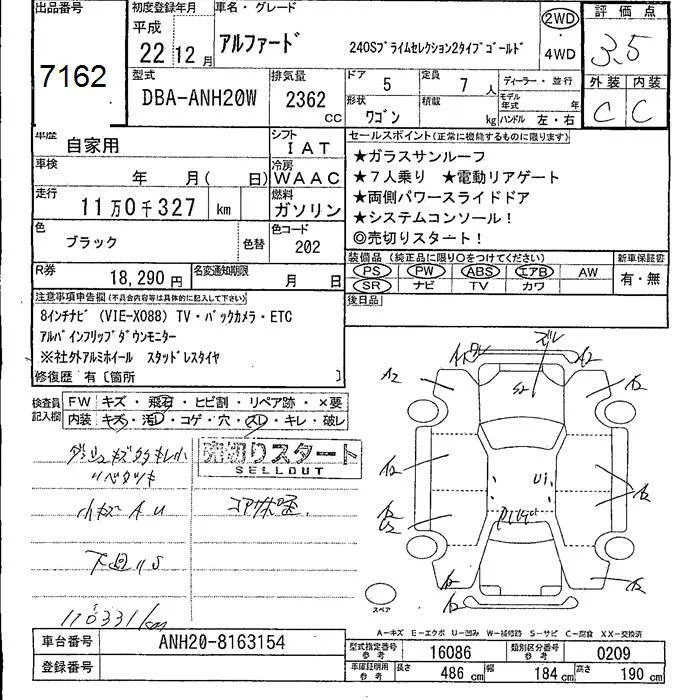 出品番号
7162
初度登録年月
平成
22年12月
車名・グレード
アルファード 240Sプライムセレクション2タイプゴールド
2WD
・
4WD
評価点
3.5
外装 内装
C C
型式
DBA-ANH20W
排気量
2362 CC
ドア 5
定員 7人
ディーラー・並行
形状 ワゴン
積載 kg
モデル年式 年
ハンドル 左・右
車歴 自家用
シフト IAT
車検 年 月( 日)
冷房 WAAC
走行 11万0千327 km
燃料 ガソリン
色 ブラック 色替
色コード 202
R券 18,290円
名変通知期限 月 日
セールスポイント(正常に機能するものに限ります)
★ガラスサンルーフ
★7人乗り ★電動リアゲート
★両側パワースライドドア
★システムコンソール!
◎売切りスタート!
装備品(純正品に限り○をつけてください)
新車保証書
PS PW ABS エアB AW
SR ナビ TV カワ
有・無
後日品
注意事項申告欄(不具合内容等は具体的に記入して下さい)
8インチナビ (VIE-X088) TV・バックカメラ・ETC
アルパインフリップダウンモニター
※社外アルミホイール スタッドレスタイヤ
修復歴 有〔箇所 〕
検査員記入欄
FW キズ・飛石・ヒビ割・リペア跡・×要
内装 キズ・汚レ・コゲ・穴・スレ・キレ・破レ
売切りスタート
SELLOUT
小キズ A U
下廻りS
110331km
ズレ
A2
A2
A2
A2
U1
A2
A2
スペア
A-キズ E-エクボ U-凹み W-補修跡 S-サビ C-腐食 XX-交換済
車台番号 ANH20-8163154
登録番号
型式指定番号 参考 16086
類別区分番号 参考 0209
車庫証明用 参考 長さ 486 cm 幅 184 cm 高さ 190 cm